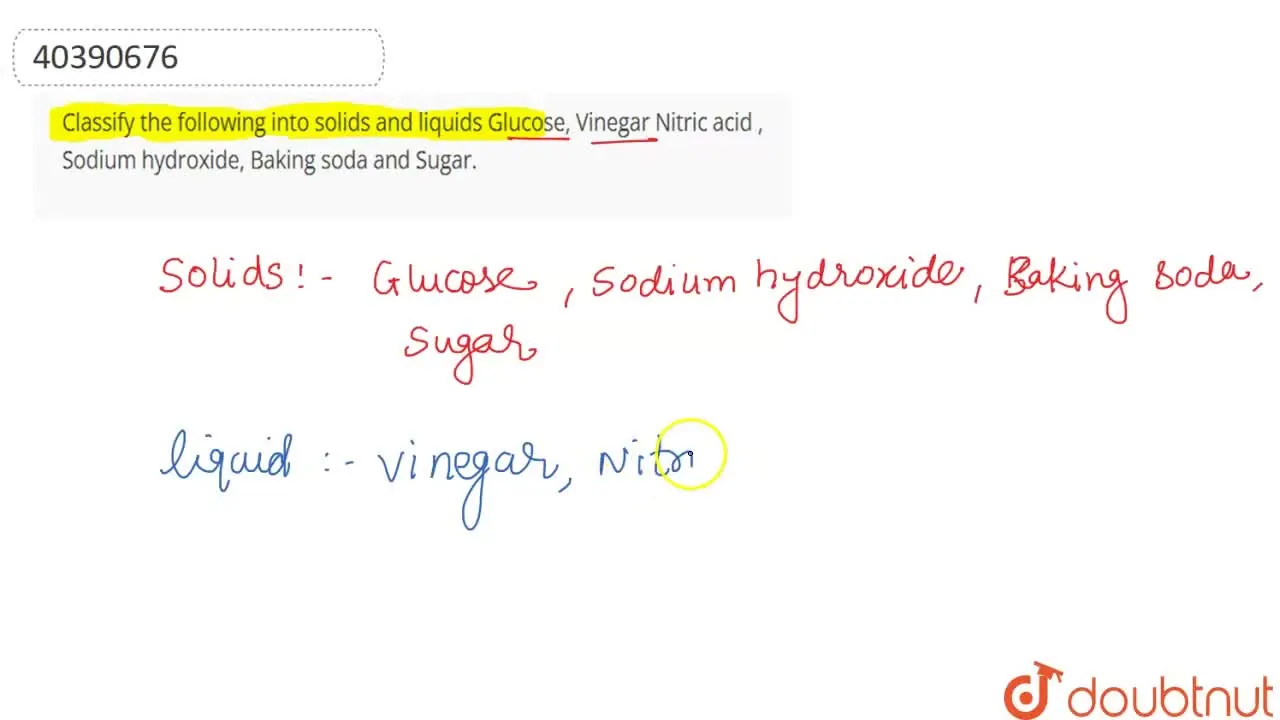 40390676
Classify the following into solids and liquids Glucose, Vinegar Nitric acid ,
Sodium hydroxide, Baking soda and Sugar.
Solids :- Glucose , Sodium hydroxide, Baking soda,
Sugar
liquid :- Vinegar, Nitri
doubtnut